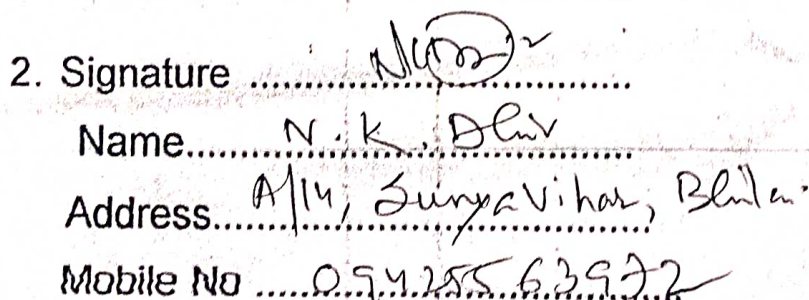 2. Signature ....................
Name.......N.K. Dhir.......
Address....A/14, Surya Vihar, Bhilai.
Mobile No .....09425563972